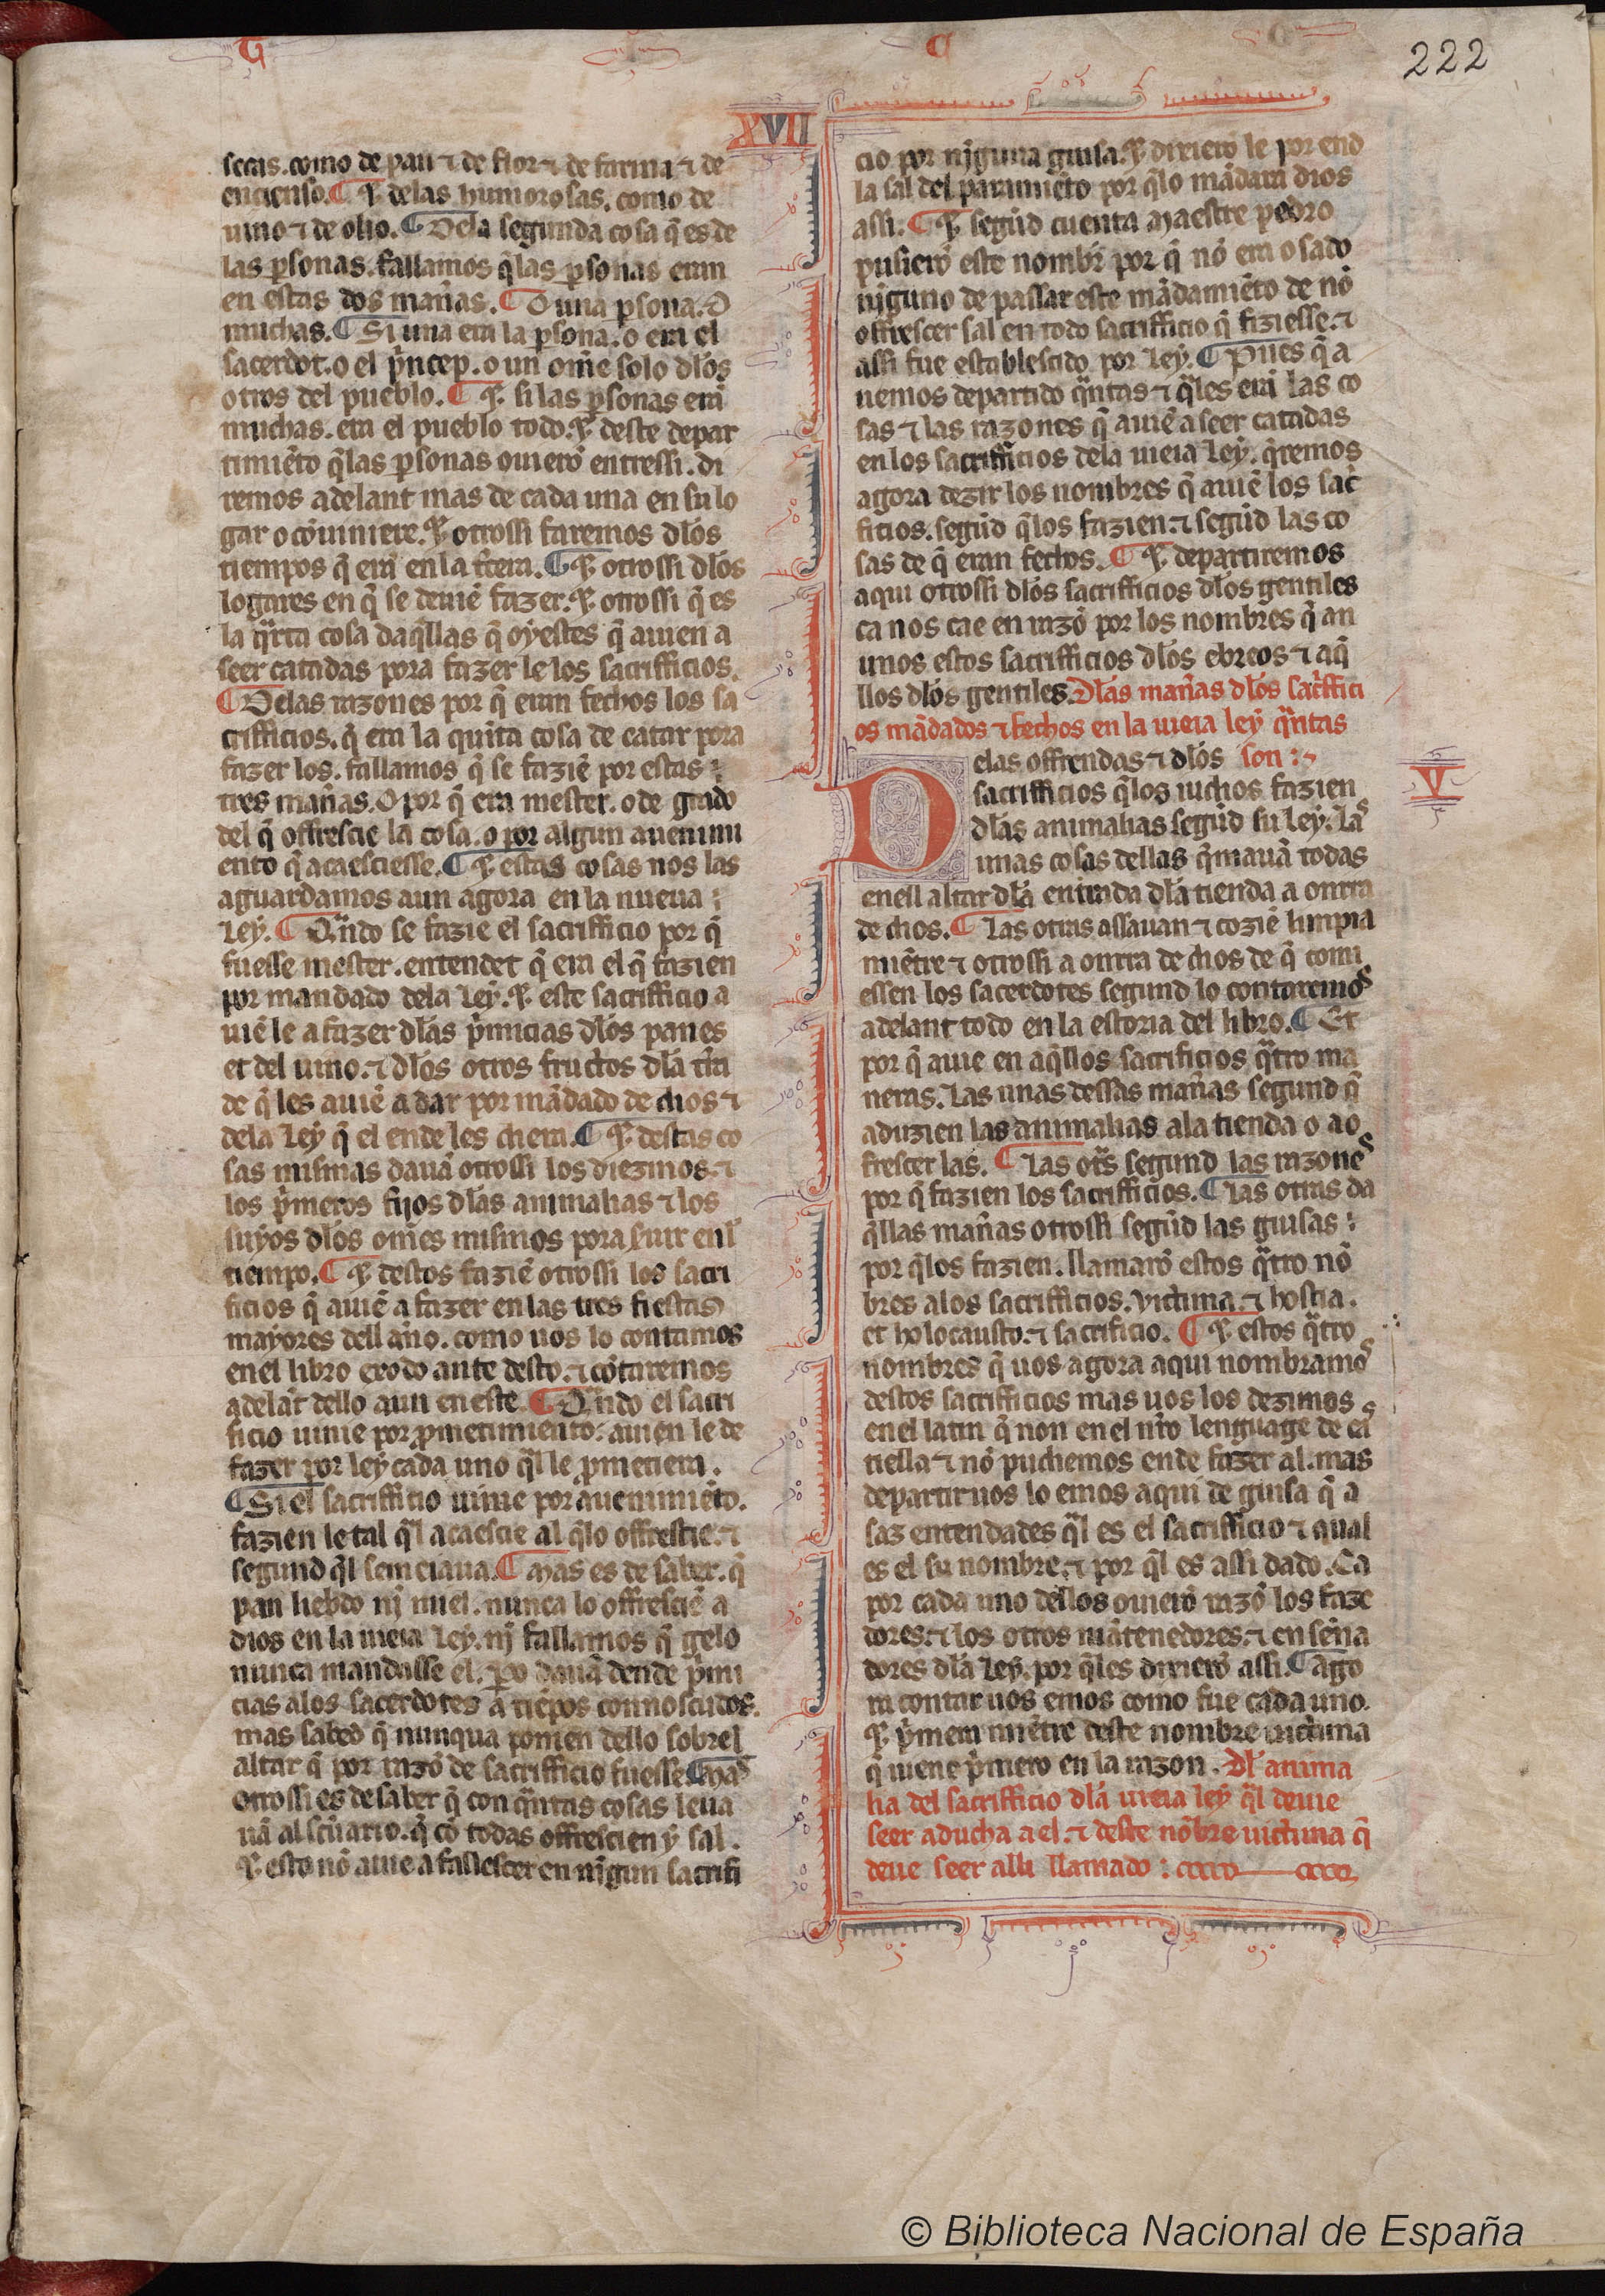 222
XVII
secas. como de pan ⁊ de flor ⁊ de farina ⁊ de
encienso. ¶ ⁊ delas humorosas. como de
uino ⁊ de olio. ¶ Dela segunda cosa q̃ es de
las ꝑsonas. fallamos q̃las ꝑsonas eran
en estas dos mañas. ¶ O una ꝑsona. O
muchas. ¶ Si una era la ꝑsona. o era el
sacerdot. o el p̃ncep. o un om̃e solo dl̃os
otros del pueblo. ¶ ⁊ si las ꝑsonas erã
muchas. era el pueblo todo. ⁊ deste depar
timiẽto q̃las ꝑsonas ouierõ entressi. di
remos adelant mas de cada una en su lo
gar o cõuiniere. ⁊ otrossi faremos dl̃os
tiempos q̃ erã en la t̃cera. ¶ ⁊ otrossi dl̃os
logares en q̃ se deuiẽ fazer. ⁊ otrossi q̃ es
la q̃rta cosa daq̃llas q̃ oyestes q̃ auien a
seer catadas pora fazer le los sacrifficios.
¶ Delas razones por q̃ eran fechos los sa
crifficios. q̃ era la quĩta cosa de catar pora
fazer los. fallamos q̃ se faziẽ por estas :
tres mañas. O por q̃ era mester. o de grado
del q̃ offrescie la cosa. o por algun auenimi
ento q̃ acaesciesse. ¶ ⁊ estas cosas nos las
aguardamos aun agora en la nueua :
Ley. ¶ Q̃ndo se fazie el sacrifficio por q̃
fuesse mester. entendet q̃ era el q̃ fazien
por mandado dela Ley. ⁊ este sacrifficio a
uiẽ le a fazer dl̃as p̃micias dl̃os panes
et del uino. ⁊ dl̃os otros fructos dl̃a tr̃a
de q̃ les auiẽ a dar por mãdado de dios ⁊
dela Ley q̃ el ende les diera. ¶ ⁊ destas co
sas mismas dauã otrossi los diezmos. ⁊
los p̃meros fijos dl̃as animalias ⁊ los
suyos dl̃os om̃es mismos pora s̃uir enl̃
tiempo. ¶ ⁊ destos faziẽ otrossi los sacri
ficios q̃ auiẽ a fazer en las tres fiestas
mayores dell año. como uos lo contamos
enel libro exodo ante desto. ⁊ cõtaremos
adelãt dello aun en este. ¶ Q̃ndo el sacri
ficio uinie por ꝓmetimiento. auien le de
fazer por ley cada uno q̃l le ꝓmetiera.
¶ Si el sacrifficio uinie por auenimiẽto.
fazien le tal q̃l acaescie al q̃lo offrescie. ⁊
segund q̃l semeiaua. ¶ Mas es de saber. q̃
pan liebdo nj miel. nunca lo offresciẽ a
dios en la uieia Ley. nj fallamos q̃ gelo
nunca mandasse el. ꝑo dauã dende p̃mi
cias alos sacerdotes a tiẽpos connosçudos.
mas sabed q̃ nunqua ponien dello sobrel
altar q̃ por razõ de sacrifficio fuesse. ¶ Mas
otrossi es de saber q̃ con q̃ntas cosas leua
uã al sc̃uario. q̃ cõ todas offrescien y sal.
⁊ esto nõ auie a fallescer en njgun sacrifi
cio por njguna guisa. ⁊ dixierõ le por end
la sal del parimiẽto por q̃lo mãdara dios
assi. ¶ ⁊ segũd cuenta maestre pedro
pusierõ este nombr̃ por q̃ nõ era osado
njguno de passar este mãdamiẽto de nõ
offrescer sal en todo sacrifficio q̃ fiziesse. ⁊
assi fue establescido por Ley. ¶ Pues q̃ a
uemos departido q̃ntas ⁊ q̃les erã las co
sas ⁊ las razones q̃ auiẽ a seer catadas
en los sacrifficios dela uieia Ley. q̃remos
agora dezir los nombres q̃ auiẽ los sac̃
ficios. segũd q̃los fazien. ⁊ segũd las co
sas de q̃ eran fechos. ¶ ⁊ departiremos
aqui otrossi dl̃os sacrifficios dl̃os gentiles
ca nos cae en razõ por los nombres q̃ an
unos estos sacrifficios dl̃os ebreos ⁊ aq̃
llos dl̃os gentiles. Dl̃as mañas dl̃os sac̃ffici
os mãdados ⁊ fechos en la uieia ley q̃ntas
son :
V
Delas offrendas ⁊ dl̃os
sacrifficios q̃los iudios fazien
dl̃as animalias segũd su Ley. Las
unas cosas dellas q̃mauã todas
enell altar dl̃a entrada dl̃a tienda a onrra
de dios. ¶ Las otras assauan ⁊ coziẽ limpia
miẽtre ⁊ otrossi a onrra de dios de q̃ comi
essen los sacerdotes segund lo contaremos
adelant todo en la estoria del libro. ¶ Et
por q̃ auie en aq̃llos sacrificios q̃tro ma
neras. Las unas dessas mañas segund q̃
aduzien las animalias ala tienda o a o
frescer las. ¶ Las ot̃s segund las razones
por q̃ fazien los sacrifficios. ¶ Las otras da
q̃llas mañas otrossi segũd las guisas :
por q̃los fazien. llamarõ estos q̃tro nõ
bres alos sacrifficios. Victima. ⁊ hostia.
et holocausto. ⁊ sacrificio. ¶ ⁊ estos q̃tro
nombres q̃ uos agora aqui nombramos
destos sacrifficios mas uos los dezimos
en el latin q̃ non en el nr̃o lenguage de cas
tiella ⁊ nõ pudiemos ende fazer al. mas
departir uos lo emos aqui de guisa q̃ a
saz entendades q̃l es el sacrifficio ⁊ qual
es el su nombre. ⁊ por q̃l es assi dado. Ca
por cada uno dellos ouierõ razõ los faze
dores. ⁊ los otros mãtenedores. ⁊ enseña
dores dl̃a Ley. por q̃les dixierõ assi. ¶ Ago
ra contar uos emos como fue cada uno.
⁊ p̃mera miẽtre deste nombre uictima
q̃ uiene p̃mero en la razon. Dl̃ anima
lia del sacrifficio dl̃a uieia ley q̃l deuie
seer aducha a el. ⁊ deste nõbre uictima q̃
deue seer alli llamado :
© Biblioteca Nacional de España